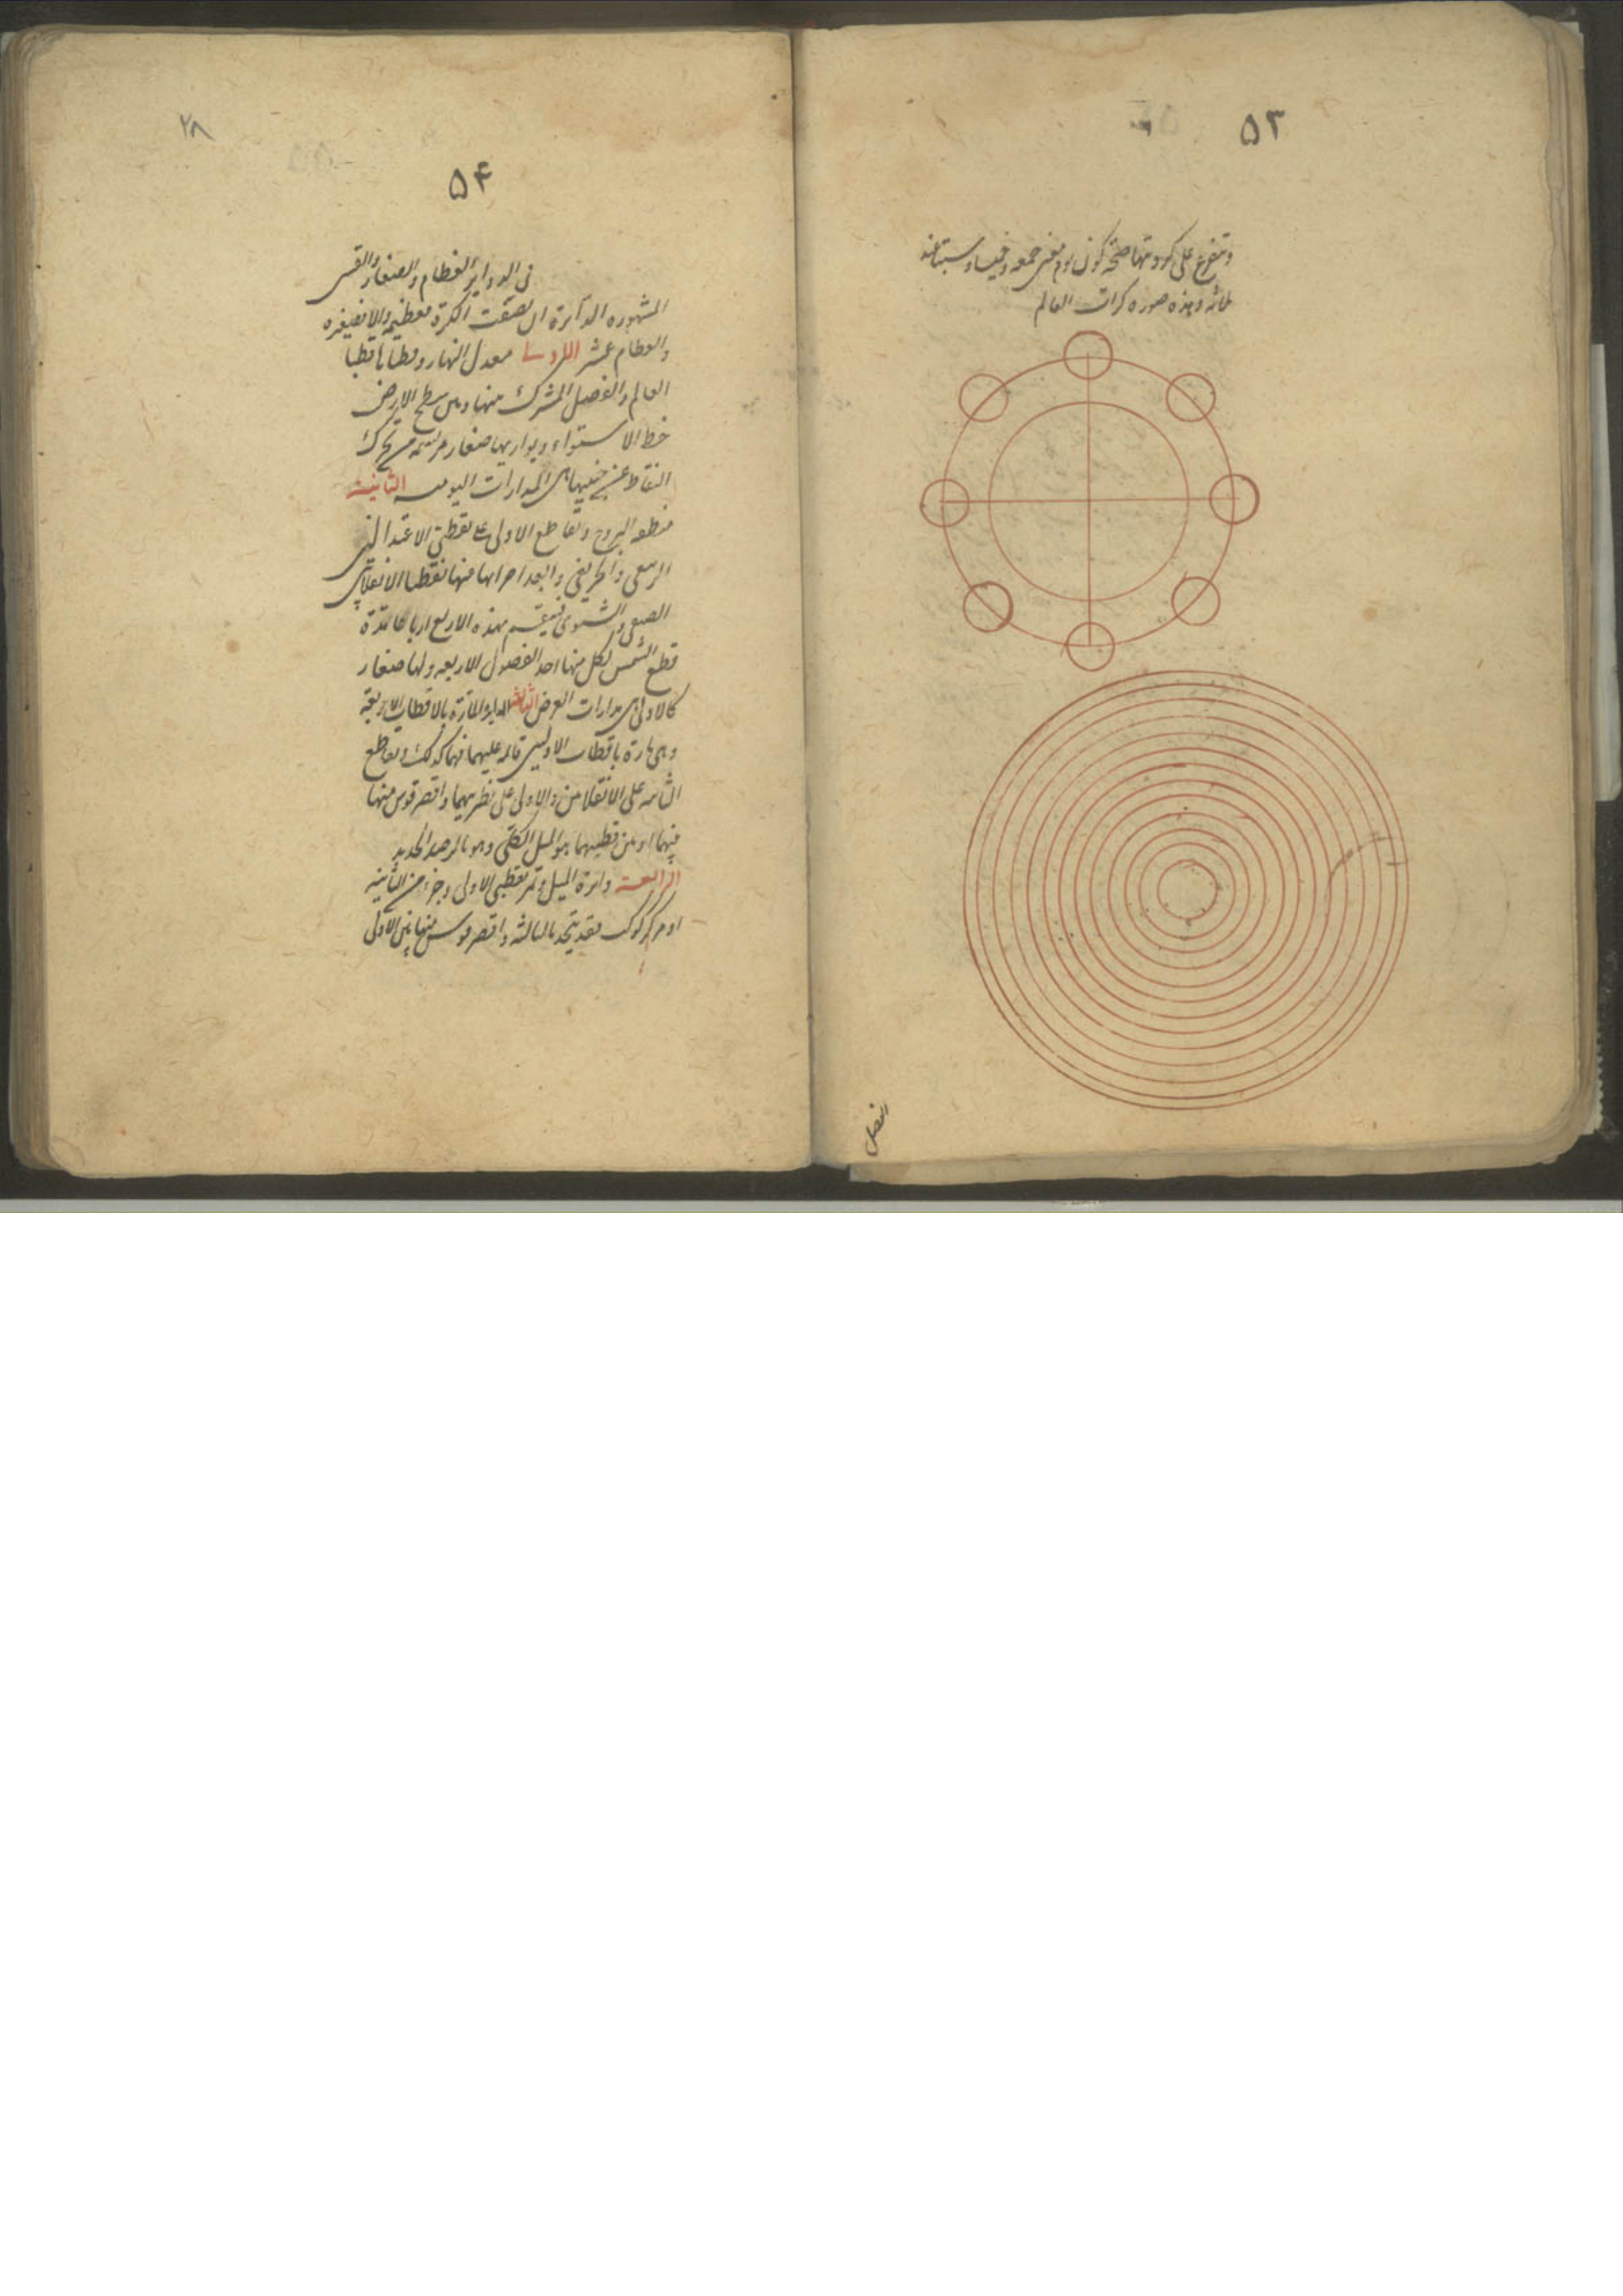 ۵۳
ويتفرع على كرويتها صحة كون يوم معين جمعة وخميسا وسبتا عند
ثلاثة وهذه صورة كرات العالم
الفصل
۲۸
۵۴
في الدواير العظام والصغار والقسي
المشهورة الدائرة ان نصفت الكرة فعظيمة والا فصغيرة
والعظام عشر الاولى معدل النهار وقطباها قطبا
العالم والفصل المشترك بينها وبين سطح الارض
خط الاستواء ويوازيها صغار مرتسمة من تحرك
النقاط عن جنبيها هي المدارات اليومية الثانية
منطقة البروج وتقاطع الاولى على نقطتي الاعتدالين
الربيعي والخريفي وابعد اجزائها منها نقطتا الانقلابين
الصيفي والشتوي فينقسم بهذه الاربع ارباعا مدة
قطع الشمس لكل منها احد الفصول الاربعة ولها صغار
كالاولى هي مدارات العرض الثالثة الدايرة المارة بالاقطاب الاربعة
وهي مارة باقطاب الاوليين قائمة عليهما فهما كذلك وتقاطع
الثانية على الانقلابين والاولى على نظيريهما واقصر قوس منها
بينهما او بين قطبيهما هو الميل الكلي وهو بالرصد الجديد
الرابعة دائرة الميل وتمر بقطبي الاولى وجزء من الثانية
او مركز كوكب فقد يتحد بالثالثة واقصر قوس منها بين الاولى